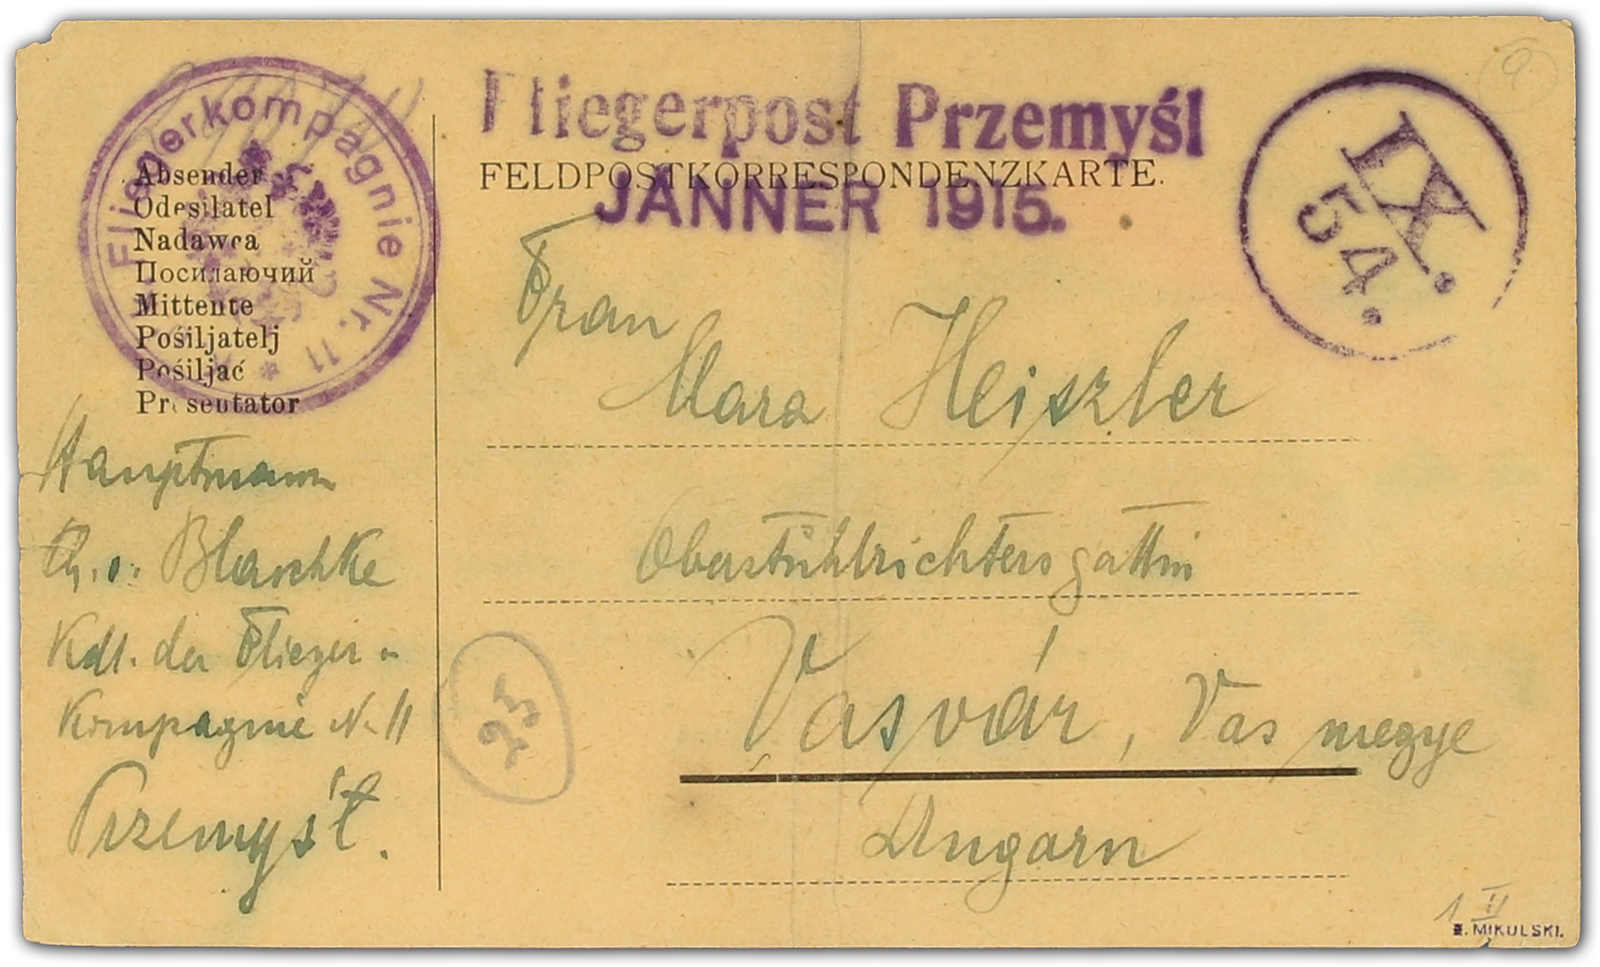 K.u.k. Fliegerkompagnie Nr. 11
Fliegerpost Przemyśl
FELDPOSTKORRESPONDENZKARTE.
JÄNNER 1915.
IX.
54.
9
Absender
Odesilatel
Nadawca
Посилаючий
Mittente
Pošiljatelj
Pošiljač
Presentator
Hauptmann
v. Blaschke
Kdt. der Flieger-
kompagnie N. 11
Przemyśl.
Frau
Mara Heiszler
Oberstuhlrichtersgattin
Vasvár, Vas megye
Ungarn
25
1 II
MIKULSKI.